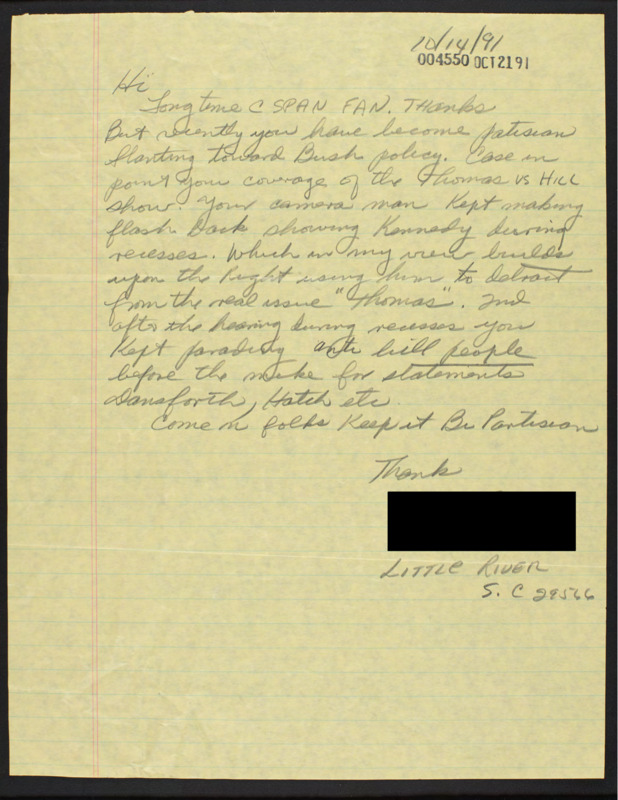 10/14/91
004550 OCT21 91
Hi
Long time C SPAN FAN. Thanks
But recently you have become patisian
slanting toward Bush policy. Case in
point your coverage of the Thomas vs HILL
show. Your camera man Kept making
flash back showing Kennedy during
recesses. Which in my view builds
upon the Right using him to detract
from the real issue "Thomas". 2nd
after the hearing during recesses you
Kept parading anti hill people
before the mike for statements
Dansforth, Hatch etc.
Come on folks Keep it Bi Partisian
Thank
LITTLE RIVER
S. C 29566